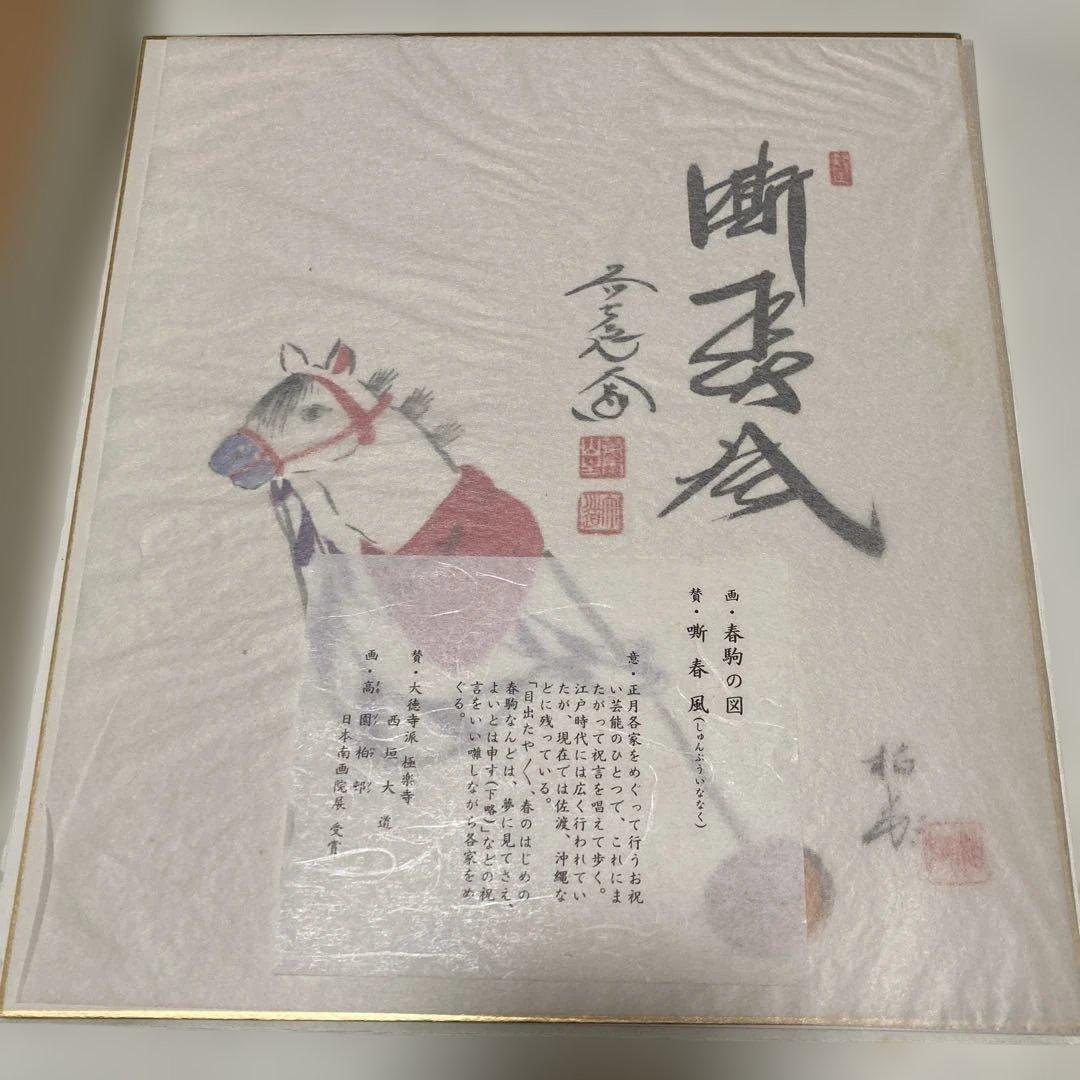 嘶春風
柏邨
画・春駒の図
賛・嘶春風(しゅんぷういななく)
意・正月各家をめぐって行うお祝
い芸能のひとつで、これにま
たがって祝言を唱えて歩く。
江戸時代には広く行われてい
たが、現在では佐渡、沖縄な
どに残っている。
「目出たや〳〵、春のはじめの
春駒なんどは、夢に見てさえ、
よいとは申す(下略)」などの祝
言をいい囃しながら各家をめ
ぐる。
賛・大徳寺派 極楽寺
西垣大道
画・高園柏邨
日本南画院展 受賞